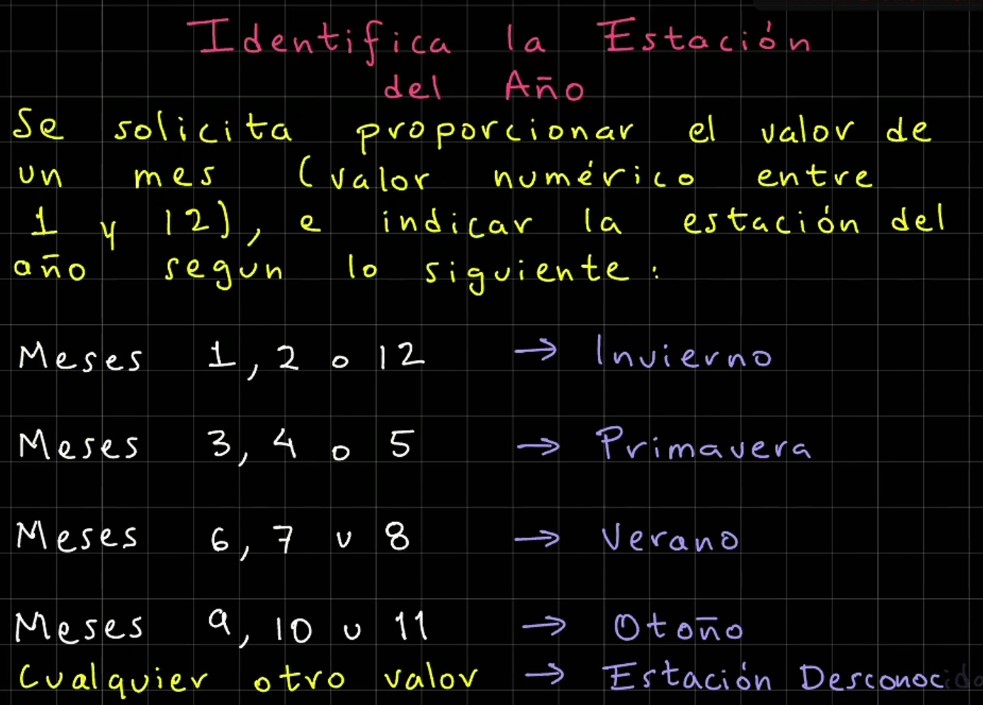 Identifica la Estación
del Año
Se solicita proporcionar el valor de
un mes (valor numérico entre
1 y 12), e indicar la estación del
año segun lo siguiente:
Meses 1, 2 o 12 → Invierno
Meses 3, 4 o 5 → Primavera
Meses 6, 7 u 8 → Verano
Meses 9, 10 u 11 → Otoño
Cualquier otro valor → Estación Desconocido